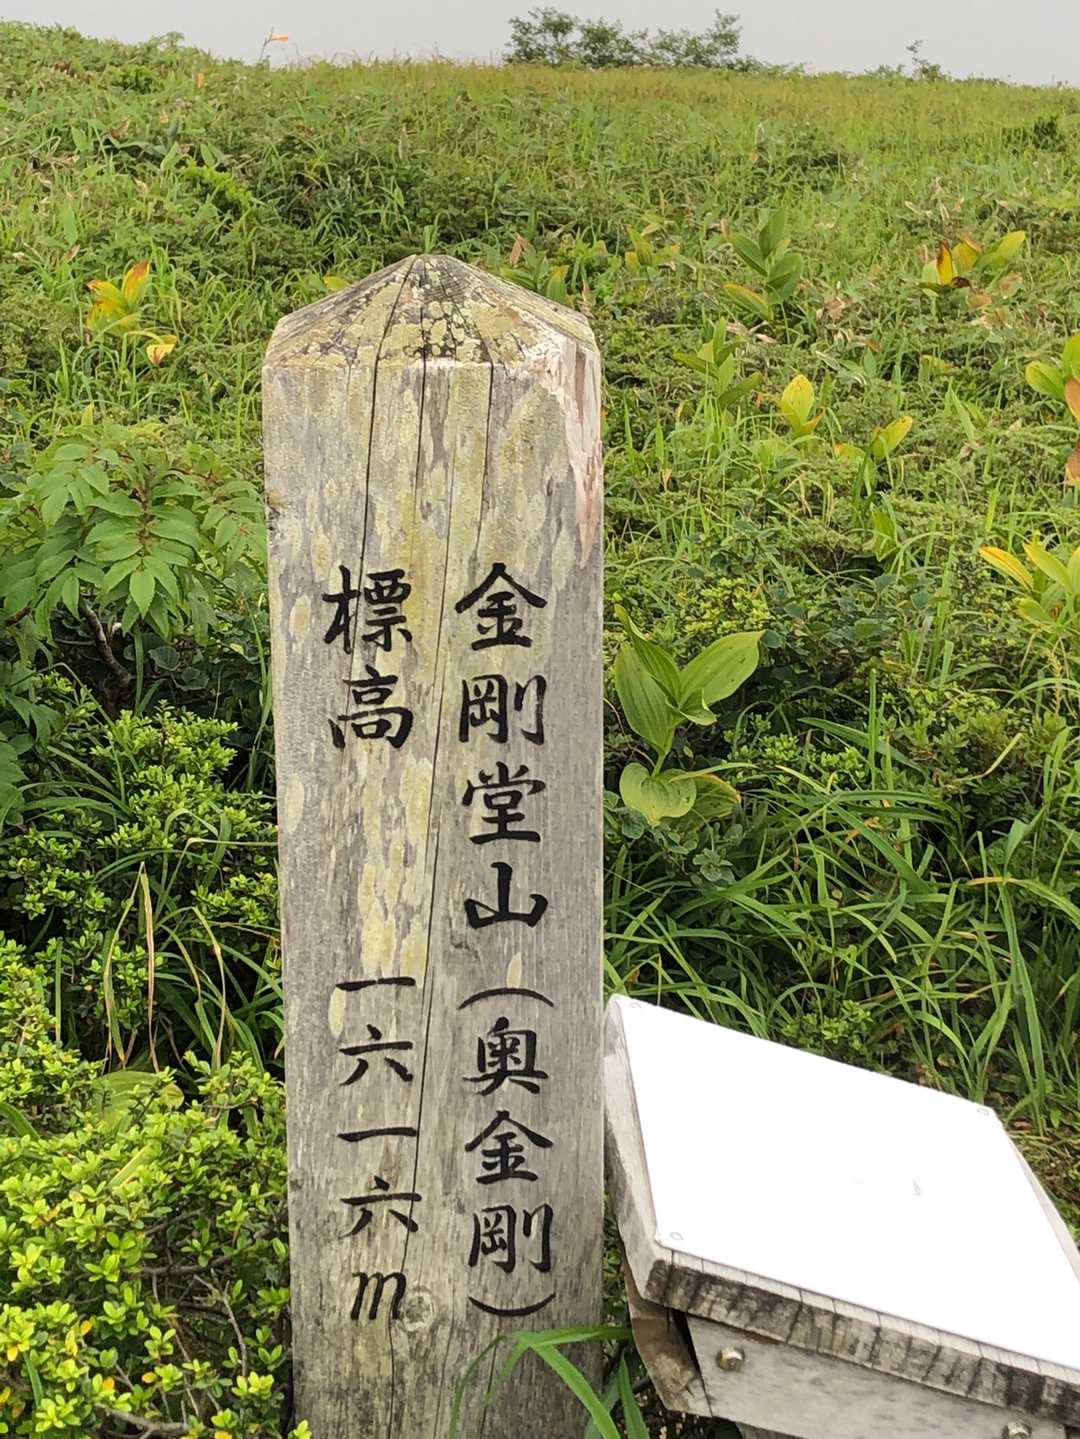 金剛堂山(奥金剛)
標高 一六一六m